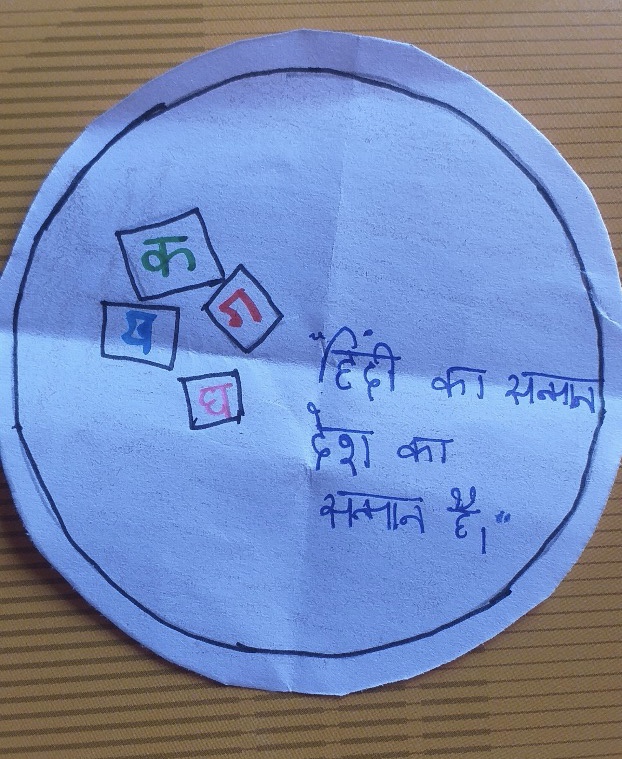 क
ग
ख
घ
"हिंदी का सन्मान
देश का
सन्मान है।"